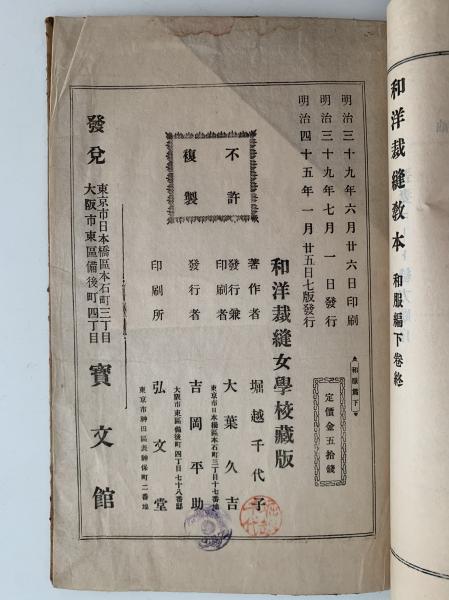 和洋裁縫教本 和服編下巻終
明治三十九年六月廿六日印刷
明治三十九年七月一日發行
明治四十五年一月廿五日七版發行
和服編下
定價金五拾錢
不許
複製
和洋裁縫女學校藏版
著作者 堀越千代子
發行兼印刷者 大葉久吉
東京市日本橋區本石町三丁目十七番地
發行者 吉岡平助
大阪市東區備後町四丁目七十八番邸
印刷所 弘文堂
東京市神田區表神保町二番地
發兌
東京市日本橋區本石町三丁目
大阪市東區備後町四丁目
寶文館